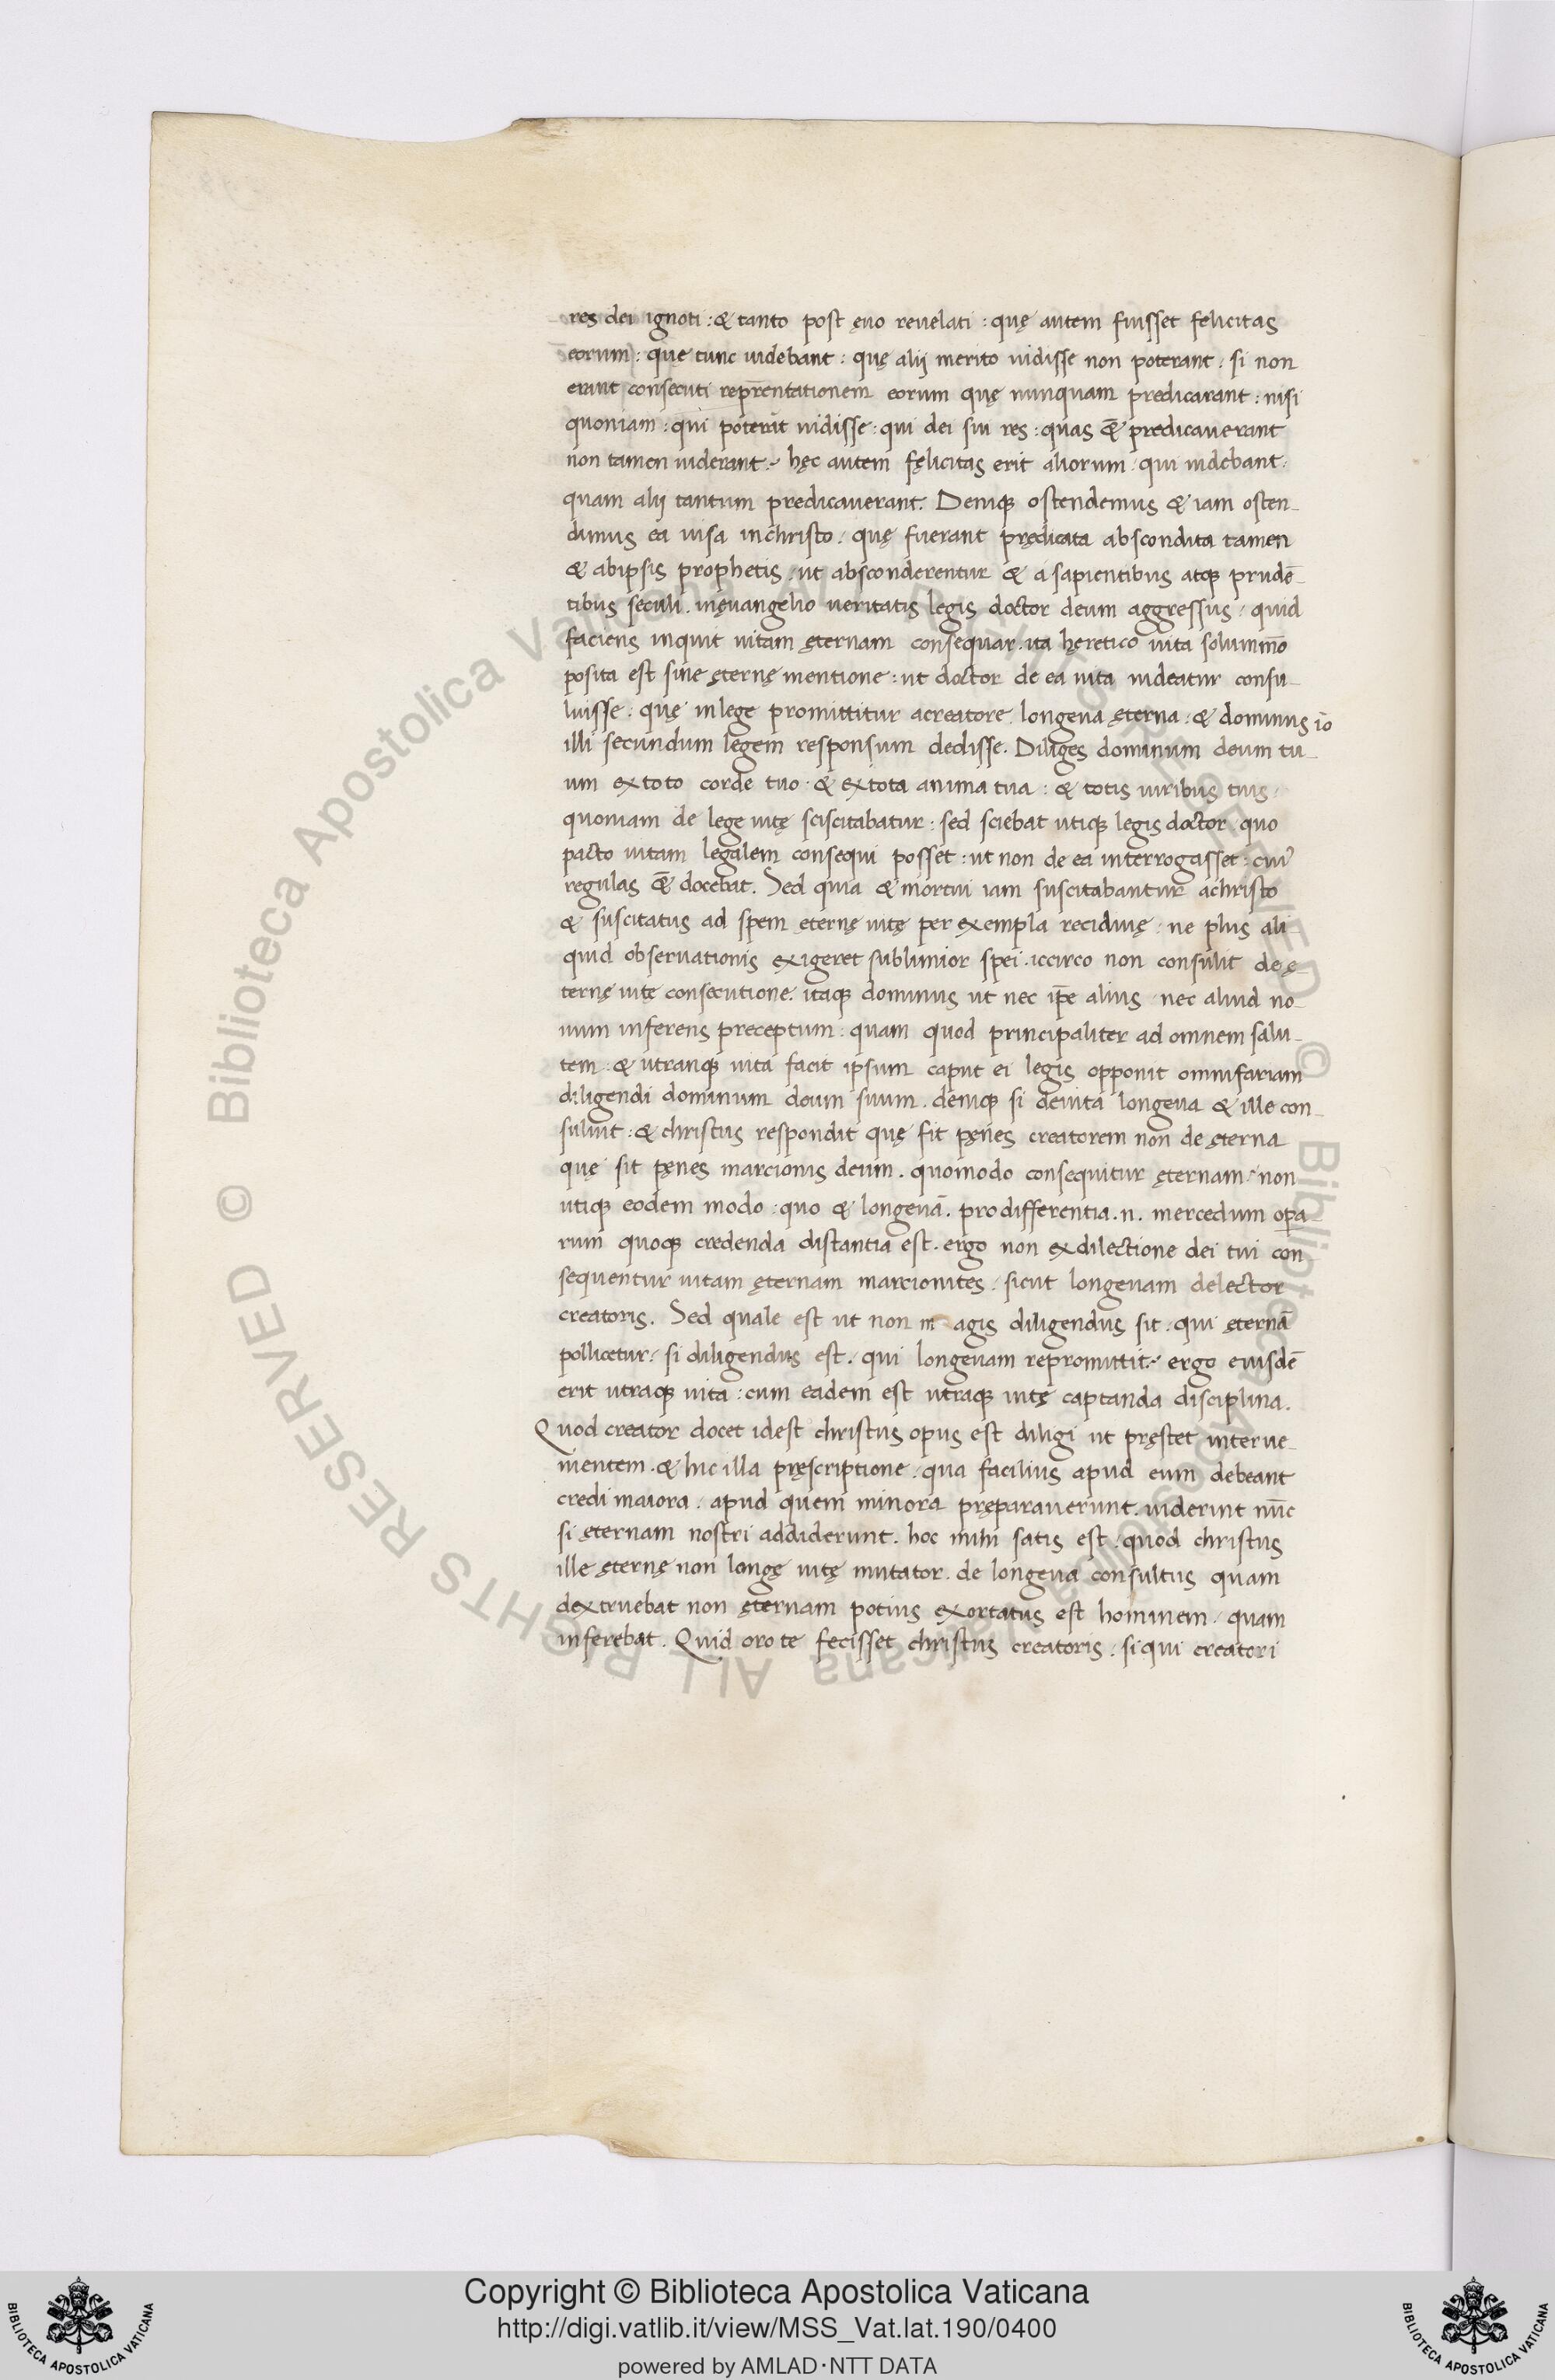 res dei ignoti : & tanto post ęuo reuelati : quę autem fuisset felicitas
eorum : quę tunc uidebant : quę alij merito uidisse non poterant : si non
erant consecuti repr̄entationem eorum quę nunquam predicarant : nisi
quoniam : qui poterāt uidisse : qui dei sui res : quas &̄ predicauerant
non tamen uiderant : hęc autem fęlicitas erit aliorum : qui uidebant :
quam alij tantum predicauerant. Deniqꝫ ostendemus & iam osten-
dimus ea uisa inchristo : quę fuerant prędicata abscondita tamen
& abipsis prophetis : ut absconderentur & a sapientibus atqꝫ prudē-
tibus sęculi. inęuangelio ueritatis legis doctor deum aggressus : quid
faciens inquit uitam ęternam consequar. ita hęretico uita solummō
posita est sine ęternę mentione : ut doctor de ea uita uideatur consu-
luisse : quę inlege promittitur acreatore longeua ęterna : & dominus iō
illi secundum legem responsum dedisse. Diliges dominum deum tu-
um extoto corde tuo & extota anima tua : & totis uiribus tuis :
quoniam de lege uitę sciscitabatur : sed sciebat utiqꝫ legis doctor quo
pacto uitam legalem consequi posset : ut non de ea interrogasset : cuiꝰ
regulas &̄ docebat. Sed quia & mortui iam suscitabantur achristo
& suscitatus ad spem ęternę uitę per exempla recidiuę : ne plus ali
quid obseruationis exigeret sublimior spei. iccirco non consulit de ę-
ternę uitę consecutione. itaqꝫ dominus ut nec ip̄e alius nec aliud no-
uum inferens preceptum : quam quod principaliter ad omnem salu-
tem : & utranqꝫ uitā facit ipsum caput ei legis opponit omnifariam
diligendi dominum deum suum. deniqꝫ si deuita longeua & ille con-
suluit : & christus respondit quę sit pęnes creatorem non de ęterna
quę sit pęnes marcionis deum. quomodo consequitur ęternam : non
utiqꝫ eodem modo : quo & longeuā. prodifferentia .n. mercedum opa
rum quoqꝫ credenda distantia est. ergo non exdilectione dei tui con
sequentur uitam ęternam marcionites : sicut longeuam delector
creatoris. Sed quale est ut non m agis diligendus sit : qui ęternā
pollicetur : si diligendus est : qui longeuam repromittit : ergo eiusdē
erit utraqꝫ uita : cum eadem est utraqꝫ uitę captanda disciplina.
Quod creator docet idest christus opus est diligi ut pręstet interue-
nientem. & hic illa pręscriptione : qua facilius apud eum debeant
credi maiora : apud quem minora pręparauerunt. uiderint nūc
si ęternam nostri addiderunt. hoc mihi satis est : quod christus
ille ęternę non longę uitę mutator. de longeua consultus quam
dextruebat non ęternam potius exortatus est hominem : quam
inferebat. Quid oro te fecisset christus creatoris : si qui creatori
© Biblioteca Apostolica Vaticana ALL RIGHTS RESERVED © Biblioteca Apostolica Vaticana ALL RIGHTS RESERVED
Copyright © Biblioteca Apostolica Vaticana
http://digi.vatlib.it/view/MSS_Vat.lat.190/0400
powered by AMLAD·NTT DATA
BIBLIOTECA APOSTOLICA VATICANA
BIBLIOTECA APOSTOLICA VATICANA